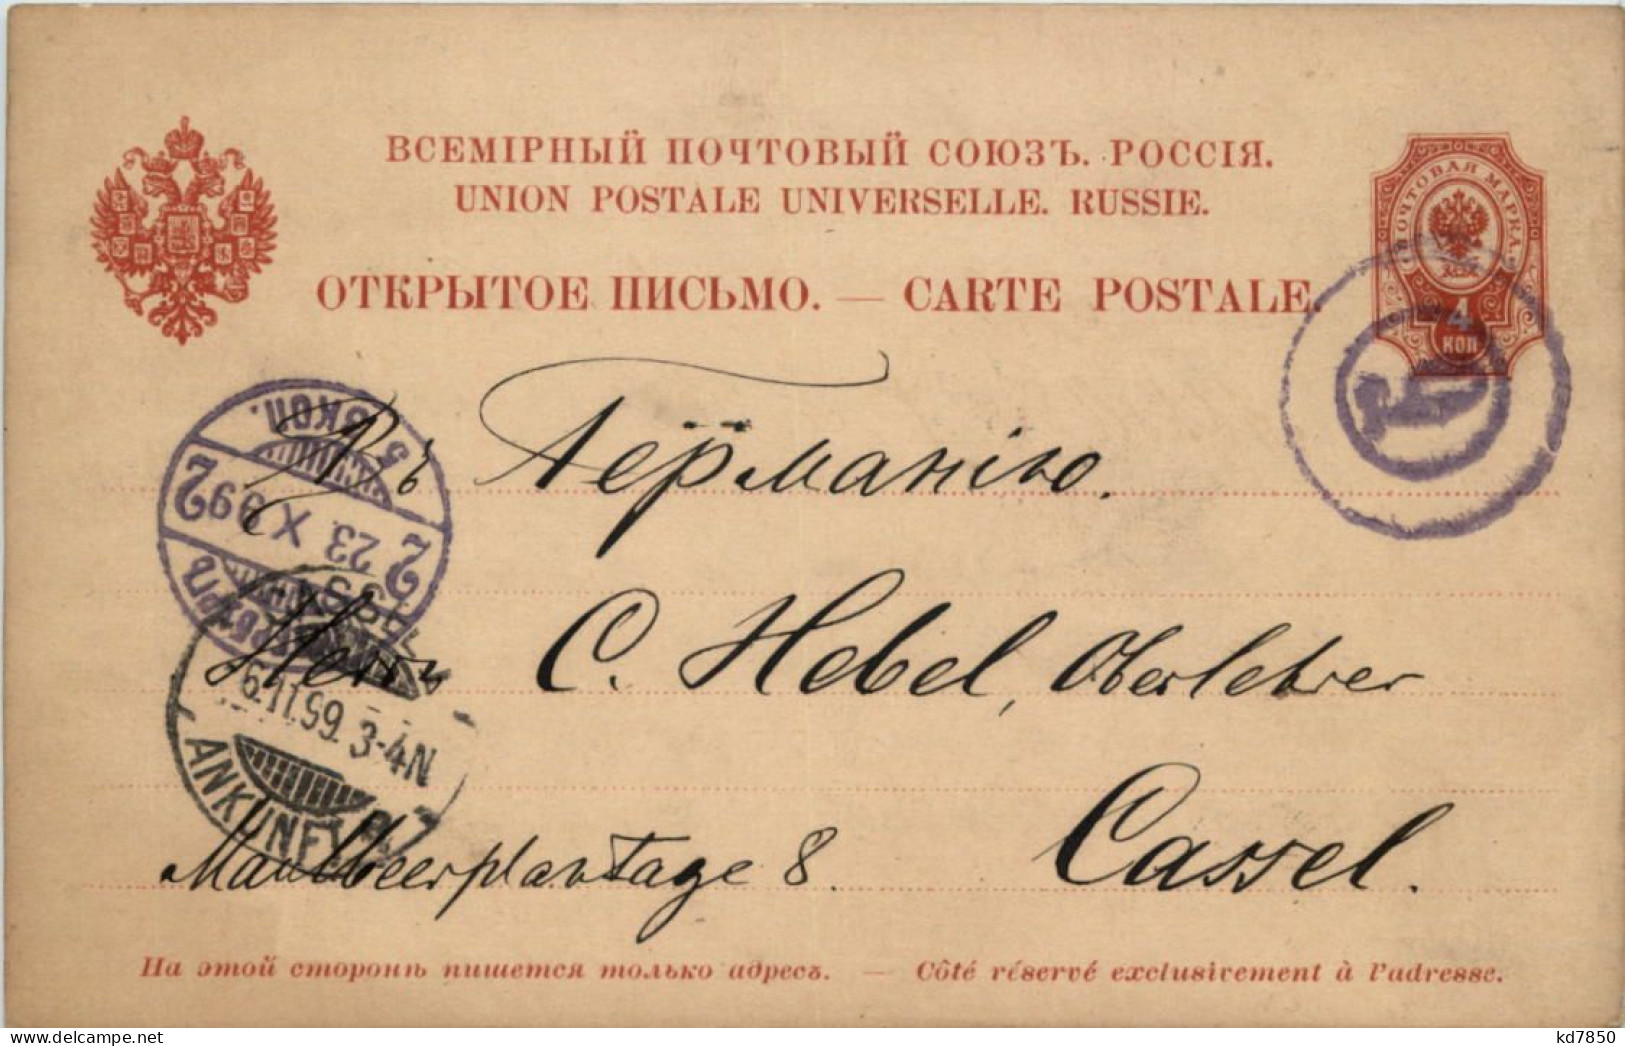 ВСЕМІРНЫЙ ПОЧТОВЫЙ СОЮЗЪ. РОССІЯ.
UNION POSTALE UNIVERSELLE. RUSSIE.
ПОЧТОВАЯ МАРКА
4
КОП
ОТКРЫТОЕ ПИСЬМО. — CARTE POSTALE.
Въ Германію.
2 23. X 99 2
Herrn C. Hebel, Oberlehrer
CASSEL
6.11.99. 3-4N
ANKUNFT
Maulbeerplantage 8. Cassel.
На этой сторонѣ пишется только адресъ. — Côté réservé exclusivement à l'adresse.
kd7850